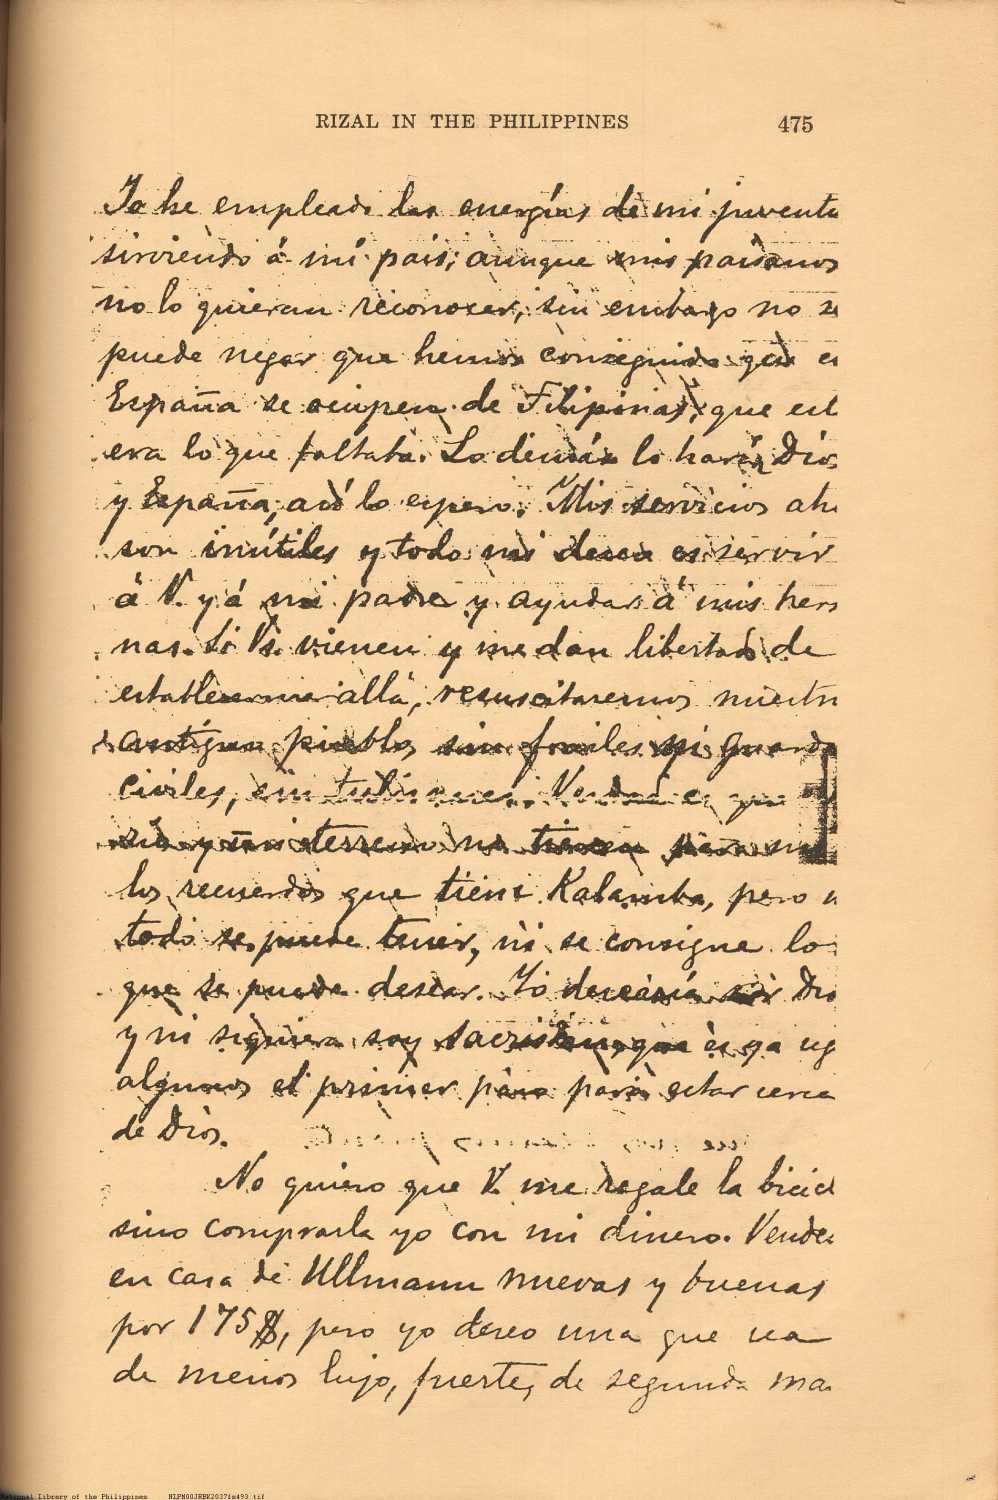 RIZAL IN THE PHILIPPINES 475
Yo he empleado las energías de mi juventu
sirviendo á mi pais; aunque mis paisanos
no lo quieran reconocer, sin embargo no se
puede negar que hemos conseguido que en
España se ocupen de Filipinas, que est
era lo que faltaba. Lo demás lo harán Dios
y España, así lo espero. Mis servicios aho
son inútiles y todo mi deseo es servir
á V. y á mi padre y ayudar á mis herm
nas. Si Vs. vienen y me dan libertad de
establecerme allá, resucitaremos nuestro
antiguo pueblo, sin frailes ni guardia
civiles, sin Verdad es que
rio y mis terreno no tienen para mi
los recuerdos que tiene Kalamba, pero n
todo se puede tener, ni se consigue lo
que se puede desear. Yo desearía ser Dio
y ni siquiera soy sacristan, que es ya seg
algunos el primer paso para estar cerca
de Dios.
No quiero que V. me regale la bicicl
sino comprarla yo con mi dinero. Venden
en casa de Ullmann nuevas y buenas
por 175 $, pero yo deseo una que sea
de menos lujo, fuerte, de segunda ma
National Library of the Philippines NLPN00JRBK2037fs493.tif